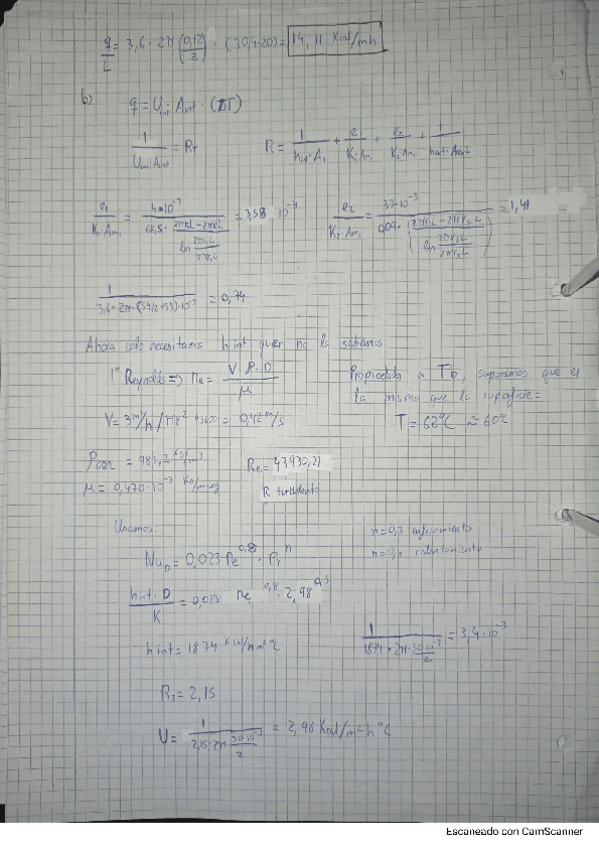 q/L = 3,6 · 2π (0,12/2) · (30,4-20) = 14,11 Kcal/mh
b) q = Uint · Aint · (ΔT)
1/(Uint · Aint) = RT    R = 1/(hint · A1) + e1/(K1 · Am1) + e2/(K2 · Am2) + 1/(hext · Aext)
e1/(K1 · Am1) = 4·10^-3 / (68,5 · (2πr2L - 2πr1L)/(ln 2πr2L/2πr1L)) = 3,58 · 10^-4    e2/(K2 · Am2) = 33·10^-3 / (0,09 · ((2πr3L - 2πr2L)/(ln 2πr3L/2πr2L))) = 1,41
1/(3,6 · 2π · (54/2+33)·10^-3) = 0,74
Ahora solo necesitamos h int que no la sabemos
1º Reynolds ⇒ Re = V · ρ · D / μ    Propiedades a Tb, suponemos que es la misma que la superficie =
V = 3 m³/h / πr² · 3600 = 0,42 m/s    T = 62ºC ≈ 60ºC
ρ = 983,2 Kg/m³    Re = 43930,21
μ = 0,470·10^-3 Kg/m·seg    R turbulento
Usamos:    n = 0,3 enfriamiento
NuD = 0,023 Re^0,8 · Pr^n    n = 0,4 calentamiento
hint · D / K = 0,023 · Re^0,8 · 2,98^0,3
h int = 1874 Kcal/hm²ºC    1/(1874 · 2π · 50·10^-3/2) = 3,4·10^-3
RT = 2,15
U = 1/(2,15 · 2π · 50·10^-3/2) = 2,96 Kcal/m² h ºC
Escaneado con CamScanner